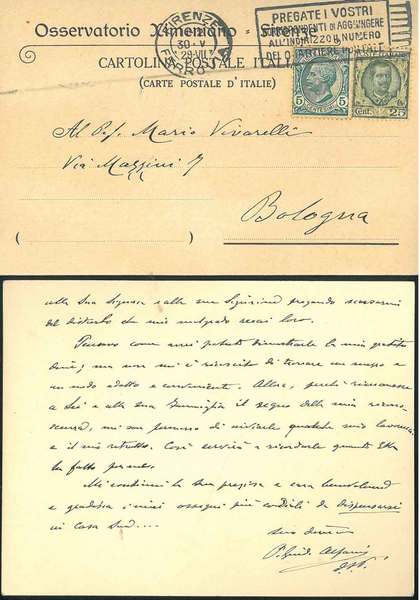 Osservatorio Ximeniano - Firenze
CARTOLINA POSTALE ITALIANA
(CARTE POSTALE D'ITALIE)
FIRENZE
30 · V
FERROVIA
PREGATE I VOSTRI
CORRISPONDENTI DI AGGIUNGERE
ALL'INDIRIZZO IL NUMERO
DEL QUARTIERE POSTALE
5 5
Cent. 25
Al P. Mario Vivarelli
Via Mazzini 7
Bologna
alla Sua Signora e alla sua Signorina pregando scusarmi
del disturbo che mio malgrado recai loro.
Pensavo come avrei potuto dimostrarle la mia gratitu
dine; ma non mi è riuscito di trovare un mezzo e
un modo adatto e conveniente. Allora, perchè rimanesse
a Lei e alla sua Famiglia il segno della mia ricono-
scenza, mi son permesso di inviarle qualche mio lavoruccio
e il mio ritratto. Così servirà a ricordarle quanto Ella
ha fatto per me.
Mi continui la sua preziosa e cara benevolenza
e gradisca i miei ossequi più cordiali da dispensarsi
in casa Sua....
Suo dev.
P. Guido Alfani